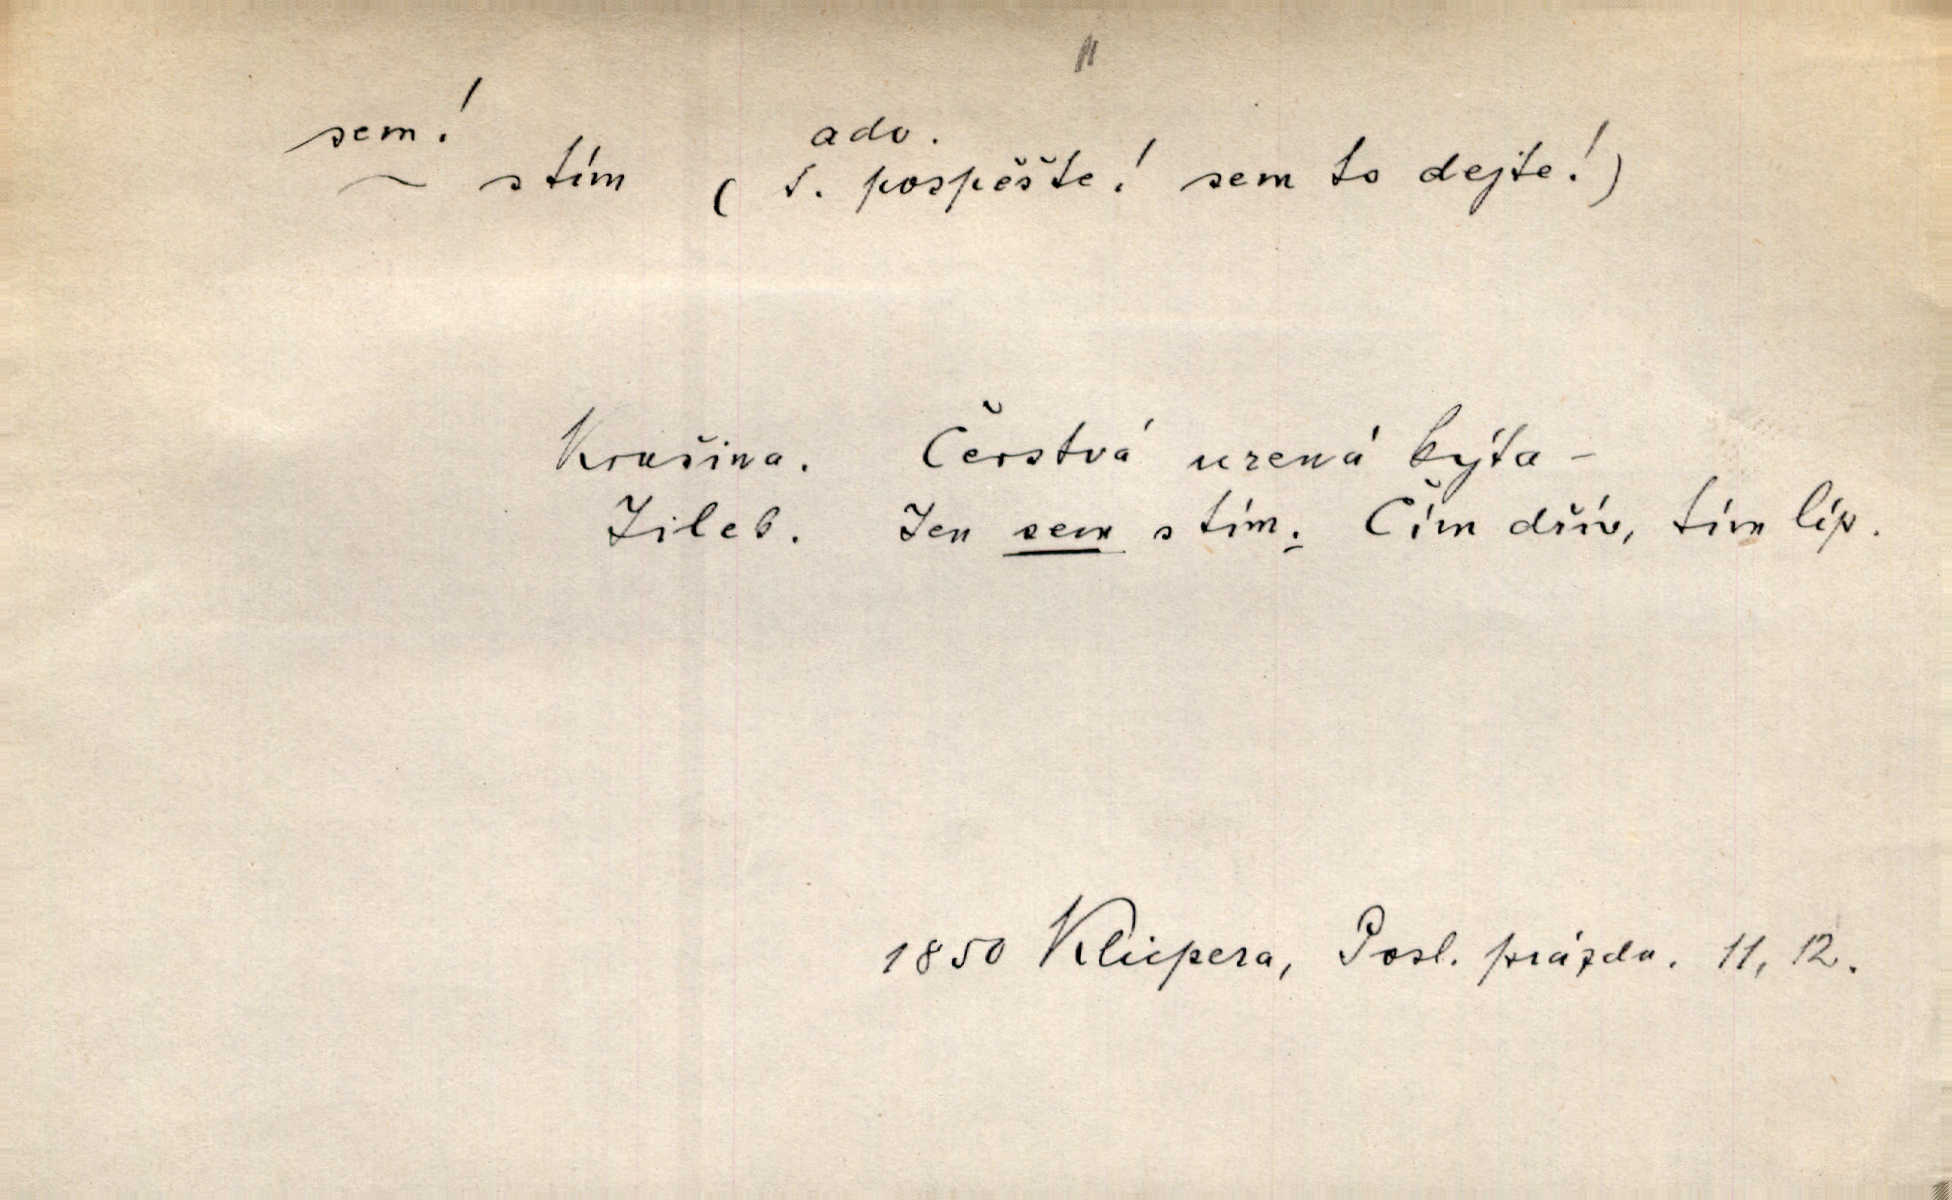 sem! adv.
~ s tím ( t. pospěšte! sem to dejte!)
Krušina. Čerstvá uzená kýta –
Jileb. Jen sem s tím. Čím dřív, tím líp.
1850 Klicpera, Posl. prázdn. 11, 12.